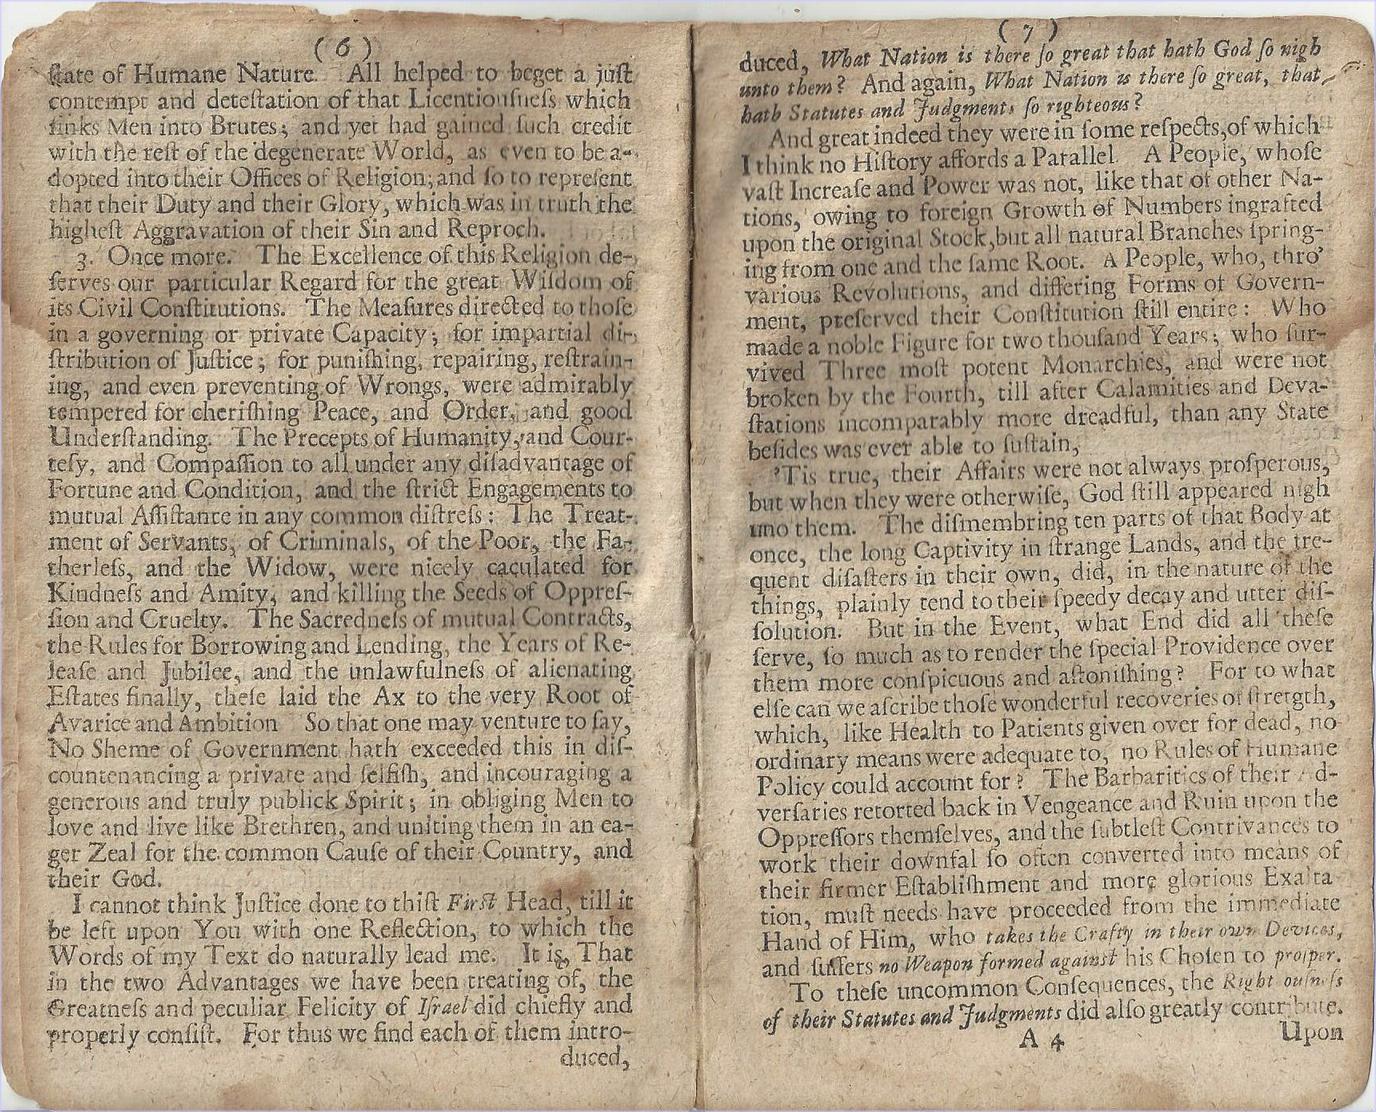 ( 6 )
ſtate of Humane Nature. All helped to beget a juſt
contempt and deteſtation of that Licentiouſneſs which
ſinks Men into Brutes; and yet had gained ſuch credit
with the reſt of the degenerate World, as even to be a-
dopted into their Offices of Religion; and ſo to repreſent
that their Duty and their Glory, which was in truth the
higheſt Aggravation of their Sin and Reproch.
3. Once more. The Excellence of this Religion de-
ſerves our particular Regard for the great Wiſdom of
its Civil Conſtitutions. The Meaſures directed to thoſe
in a governing or private Capacity; for impartial di-
ſtribution of Juſtice; for puniſhing, repairing, reſtrain-
ing, and even preventing of Wrongs, were admirably
tempered for cheriſhing Peace, and Order, and good
Underſtanding. The Precepts of Humanity, and Cour-
teſy, and Compaſſion to all under any diſadvantage of
Fortune and Condition, and the ſtrict Engagements to
mutual Aſſiſtance in any common diſtreſs: The Treat-
ment of Servants, of Criminals, of the Poor, the Fa-
therleſs, and the Widow, were nicely caculated for
Kindneſs and Amity, and killing the Seeds of Oppreſ-
ſion and Cruelty. The Sacredneſs of mutual Contracts,
the Rules for Borrowing and Lending, the Years of Re-
leaſe and Jubilee, and the unlawfulneſs of alienating
Eſtates finally, theſe laid the Ax to the very Root of
Avarice and Ambition So that one may venture to ſay,
No Sheme of Government hath exceeded this in diſ-
countenancing a private and ſelfiſh, and incouraging a
generous and truly publick Spirit; in obliging Men to
love and live like Brethren, and uniting them in an ea-
ger Zeal for the common Cauſe of their Country, and
their God.
I cannot think Juſtice done to thiſt Firſt Head, till it
be left upon You with one Reflection, to which the
Words of my Text do naturally lead me. It is, That
in the two Advantages we have been treating of, the
Greatneſs and peculiar Felicity of Iſrael did chiefly and
properly conſiſt. For thus we find each of them intro-
duced,
( 7 )
duced, What Nation is there ſo great that hath God ſo nigh
unto them? And again, What Nation is there ſo great, that
hath Statutes and Judgments ſo righteous?
And great indeed they were in ſome reſpects, of which
I think no Hiſtory affords a Parallel. A People, whoſe
vaſt Increaſe and Power was not, like that of other Na-
tions, owing to foreign Growth of Numbers ingrafted
upon the original Stock, but all natural Branches ſpring-
ing from one and the ſame Root. A People, who, thro'
various Revolutions, and differing Forms of Govern-
ment, preſerved their Conſtitution ſtill entire: Who
made a noble Figure for two thouſand Years; who ſur-
vived Three moſt potent Monarchies, and were not
broken by the Fourth, till after Calamities and Deva-
ſtations incomparably more dreadful, than any State
beſides was ever able to ſuſtain,
'Tis true, their Affairs were not always proſperous,
but when they were otherwiſe, God ſtill appeared nigh
unto them. The diſmembring ten parts of that Body at
once, the long Captivity in ſtrange Lands, and the fre-
quent diſaſters in their own, did, in the nature of the
things, plainly tend to their ſpeedy decay and utter diſ-
ſolution. But in the Event, what End did all theſe
ſerve, ſo much as to render the ſpecial Providence over
them more conſpicuous and aſtoniſhing? For to what
elſe can we aſcribe thoſe wonderful recoveries of ſtrength,
which, like Health to Patients given over for dead, no
ordinary means were adequate to, no Rules of Humane
Policy could account for? The Barbarities of their Ad-
verſaries retorted back in Vengeance and Ruin upon the
Oppreſſors themſelves, and the ſubtleſt Contrivances to
work their downfal ſo often converted into means of
their firmer Eſtabliſhment and more glorious Exalta
tion, muſt needs have proceeded from the immediate
Hand of Him, who takes the Crafty in their own Devices,
and ſuffers no Weapon formed againſt his Choſen to proſper.
To theſe uncommon Conſequences, the Righteouſneſs
of their Statutes and Judgments did alſo greatly contribute.
A 4 Upon